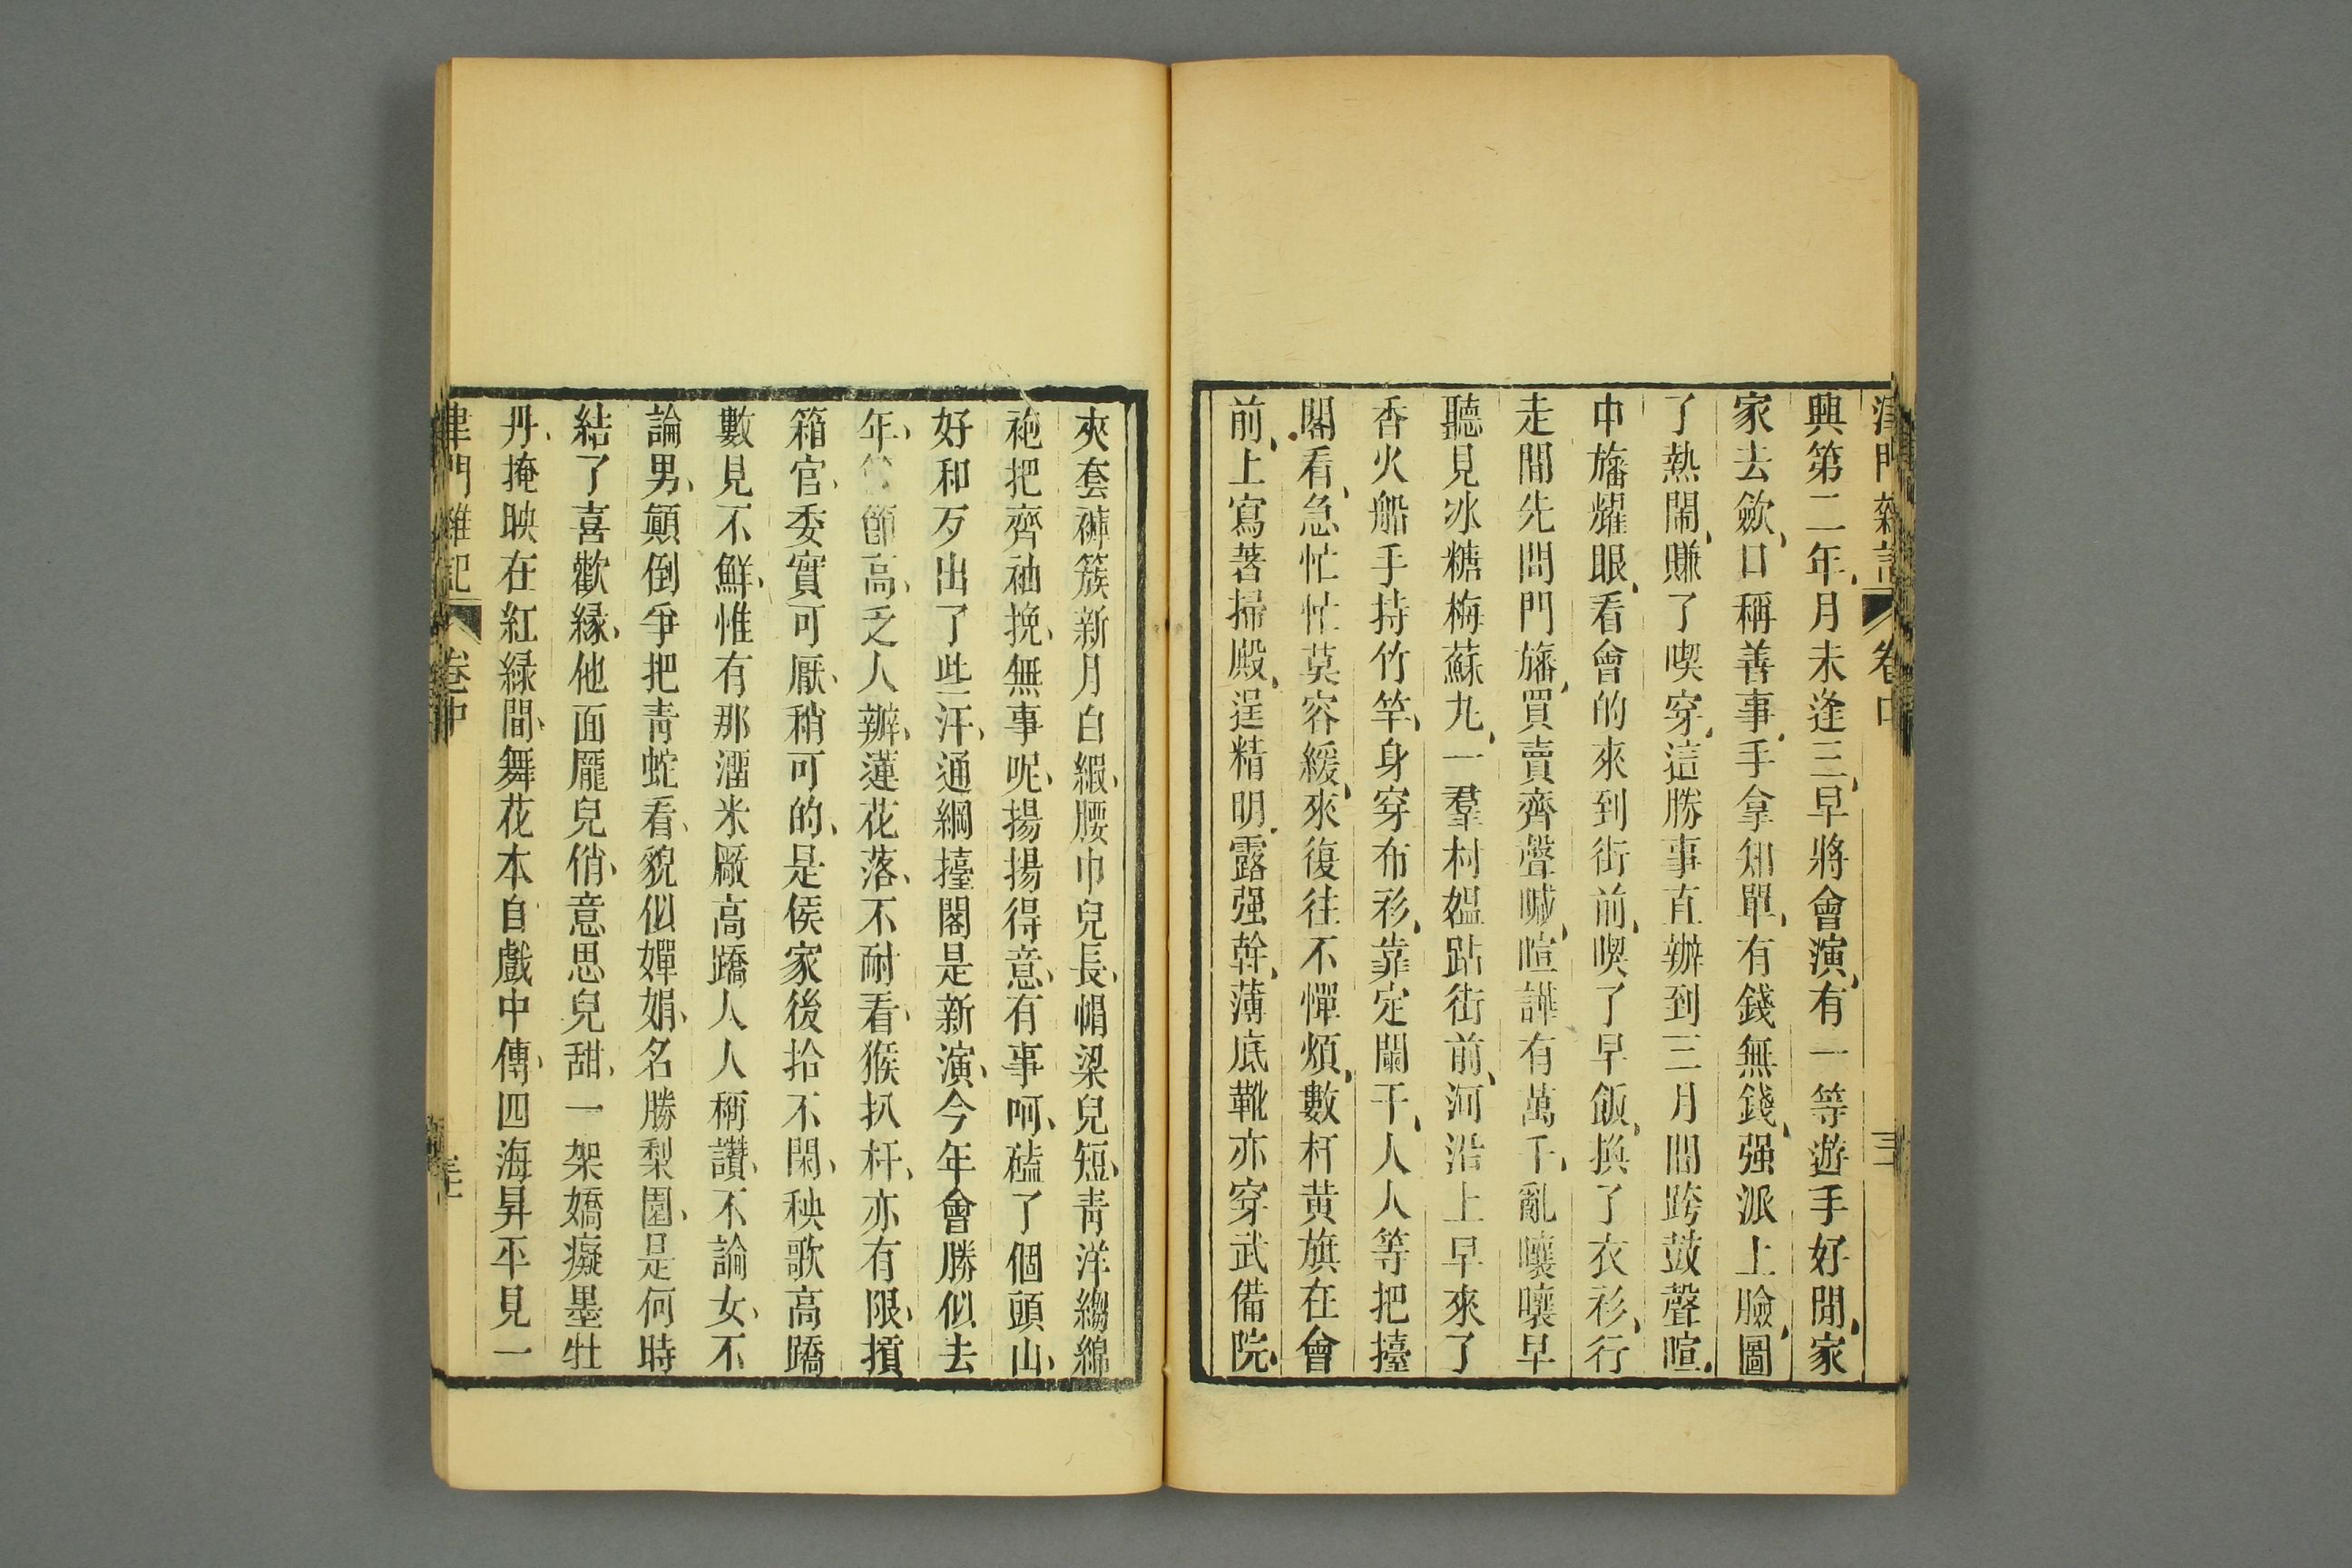 津門雜記 卷中 三
興第二年月未逢三早將會演有一等遊手好閒家
家去歛口稱善事手拿知單有錢無錢强派上臉圖
了熱鬧賺了喫穿這勝事直辦到三月間跨鼓聲喧
中旛燿眼看會的來到街前喫了早飯換了衣衫行
走間先問門旛買賣齊聲喊喧譁有萬千亂嚷嚷早
聽見冰糖梅蘇九一羣村媼跕街前河沿上早來了
香火船手持竹竿身穿布衫靠定闌干人人等把擡
閣看急忙忙莫容緩來復往不憚煩數杆黄旗在會
前上寫著掃殿逞精明露强幹薄底靴亦穿武備院
夾套褲簇新月白緞腰巾兒長帽梁兒短靑洋縐綿
袍把齊袖挽無事呢揚揚得意有事呵磕了個頭山
好和歹出了些汗通綱擡閣是新演今年會勝似去
年節高乏人辦蓮花落不耐看猴扒杆亦有限摃
箱官委實可厭稍可的是侯家後拾不閑秧歌高蹻
數見不鮮惟有那溜米厰高蹻人人稱讚不論女不
論男顚倒爭把靑蛇看貌似嬋娟名勝梨園是何時
結了喜歡緣他面龐兒俏意思兒甜一架嬌癡墨牡
丹掩映在紅綠間舞花本自戲中傳四海昇平見一
津門雜記 卷中